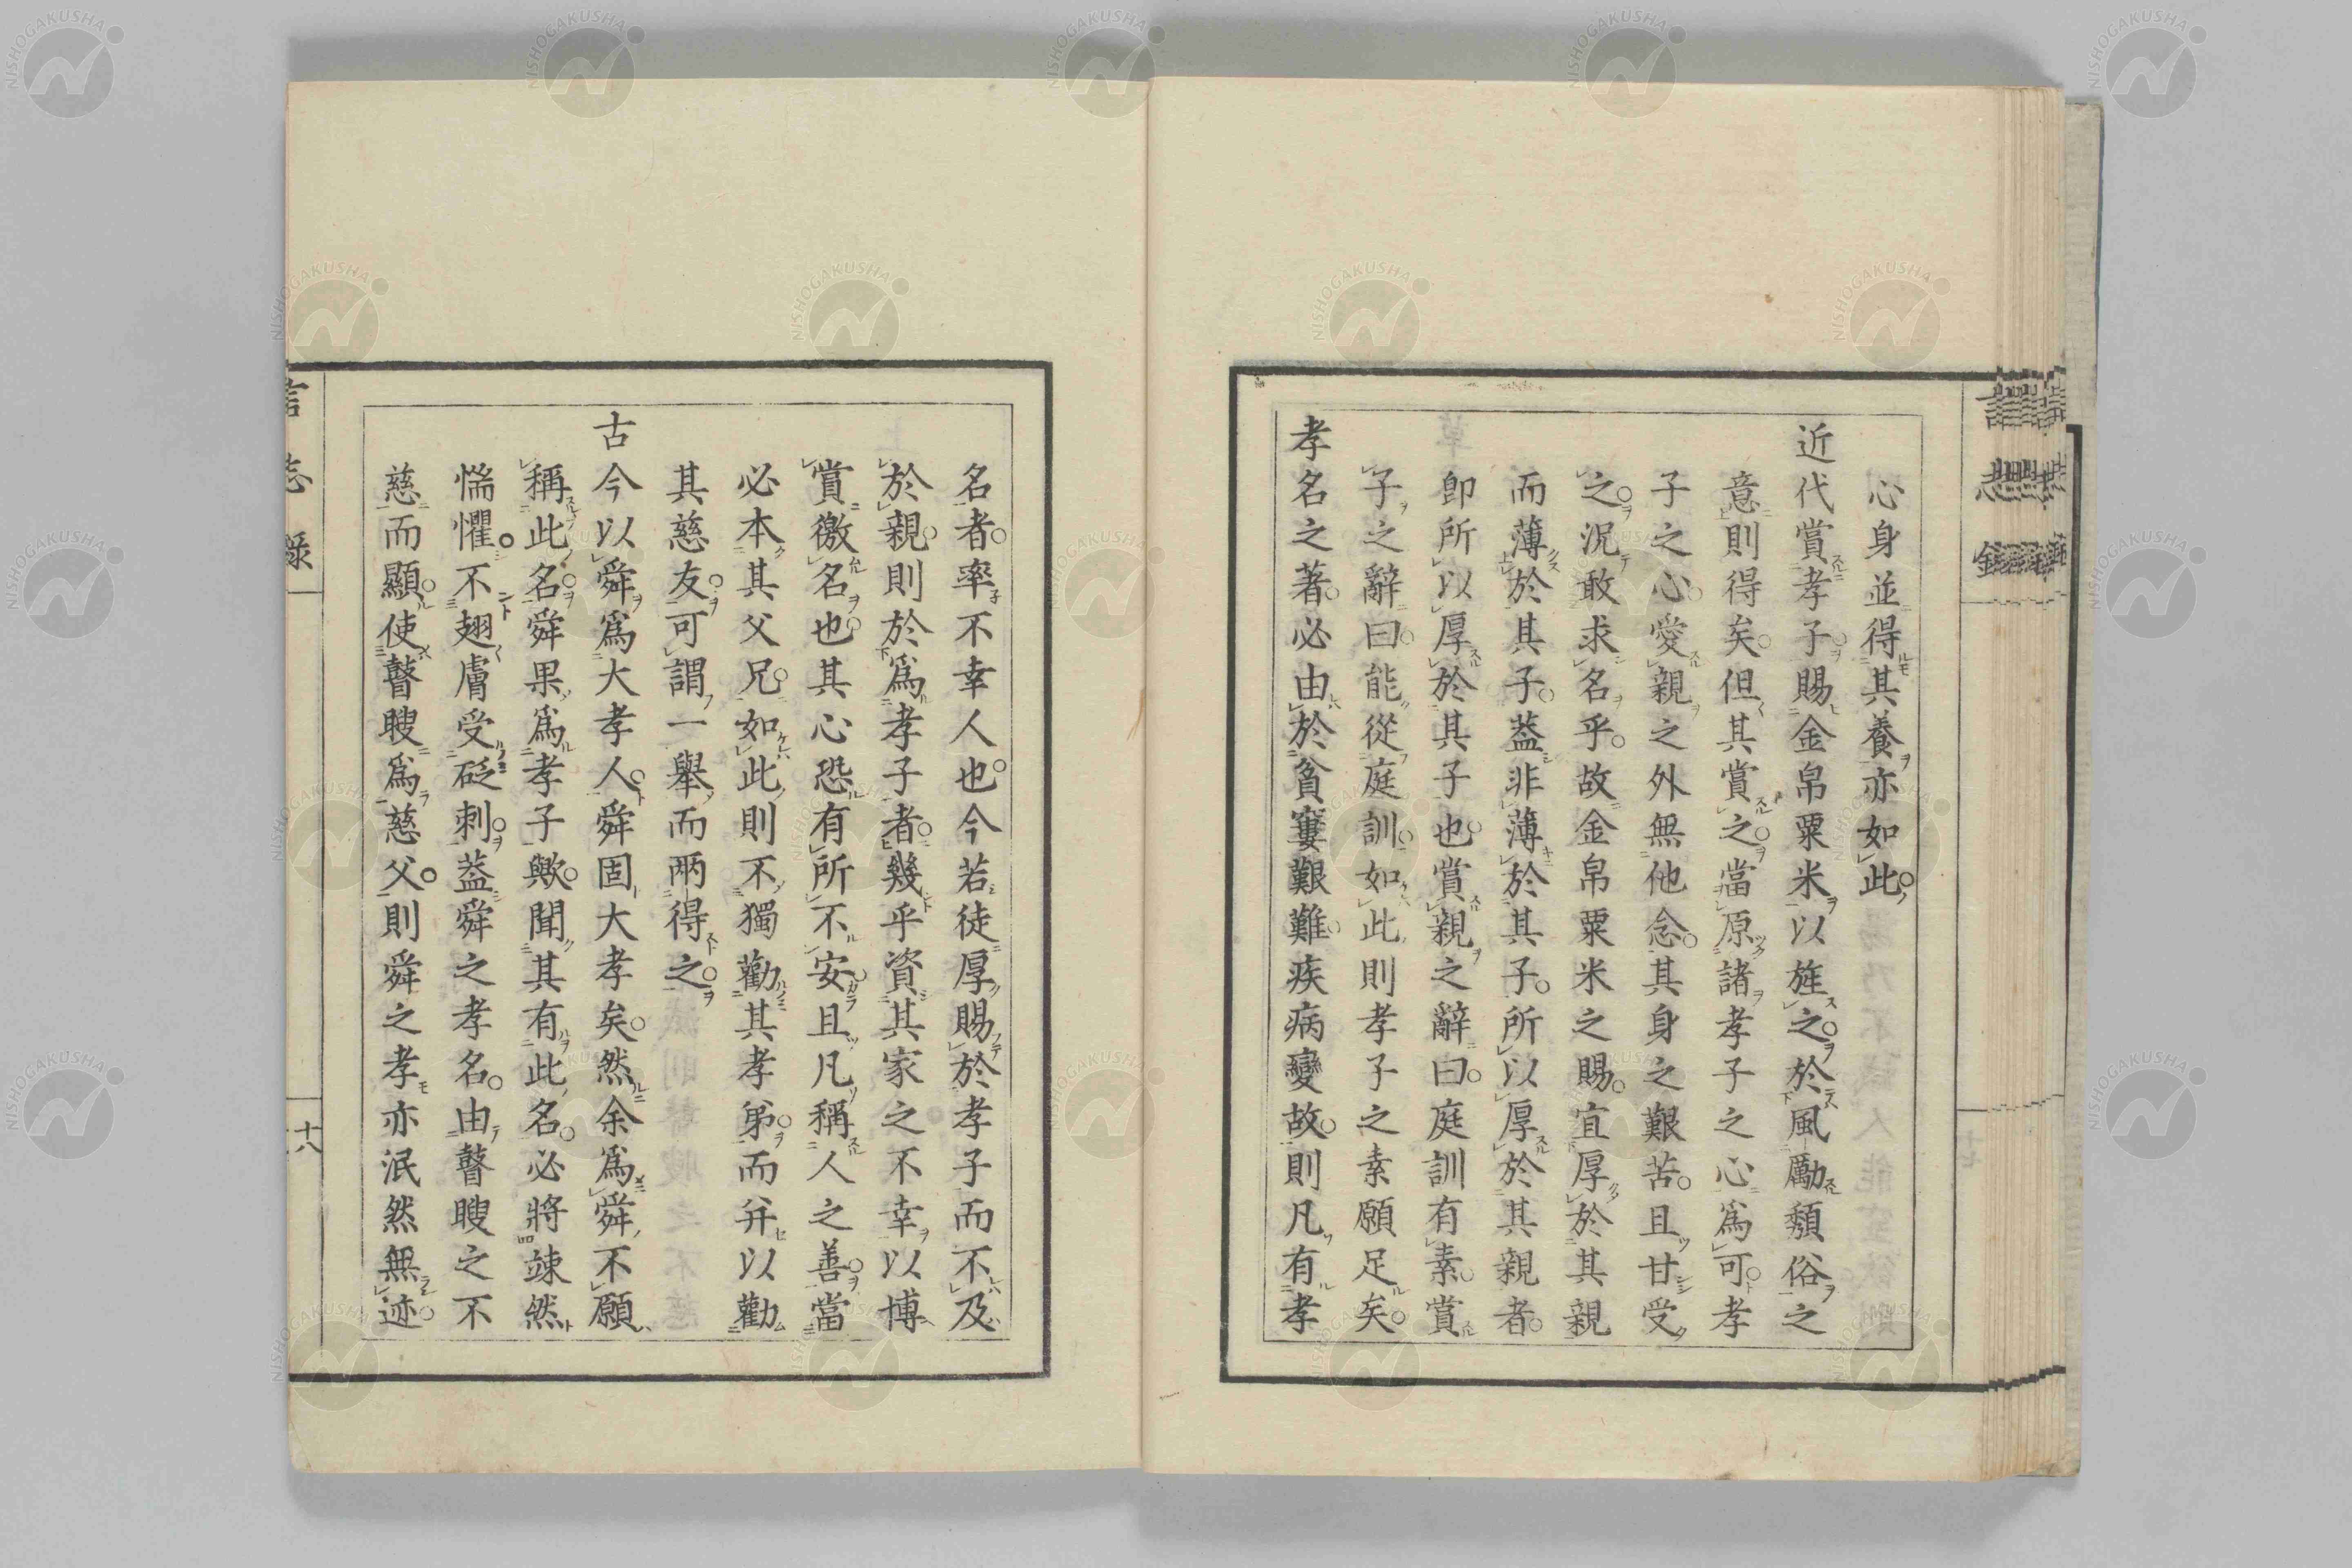 心身並得其養亦如此。
近代賞孝子。賜金帛粟米以旌之。於風勵頽俗之
意則得矣。但其賞之。當原諸孝子之心爲可。孝
子之心。愛親之外無他念。其身之艱苦。且甘受
之。況敢求名乎。故金帛粟米之賜。宜厚於其親
而薄於其子。葢非薄於其子。所以厚於其親者。
卽所以厚於其子也。賞親之辭曰。庭訓有素。賞
子之辭曰。能從庭訓。如此則孝子之素願足矣。
孝名之著。必由於貧窶艱難。疾病變故。則凡有孝
名者。率不幸人也。今若徒厚賜於孝子而不及
於親。則於爲孝子者。幾乎資其家之不幸以博
賞徼名也。其心恐有所不安。且凡稱人之善。當
必本其父兄。如此則不獨勸其孝弟。而并以勸
其慈友。可謂一舉而兩得之。
古今以舜爲大孝人。舜固大孝矣。然余爲舜不願
稱此名。舜果爲孝子歟。聞其有此名。必將竦然
惴懼。不翅膚受砭刺。葢舜之孝名。由瞽瞍之不
慈而顯。使瞽瞍爲慈父。則舜之孝亦泯然無迹。
言志錄
十八